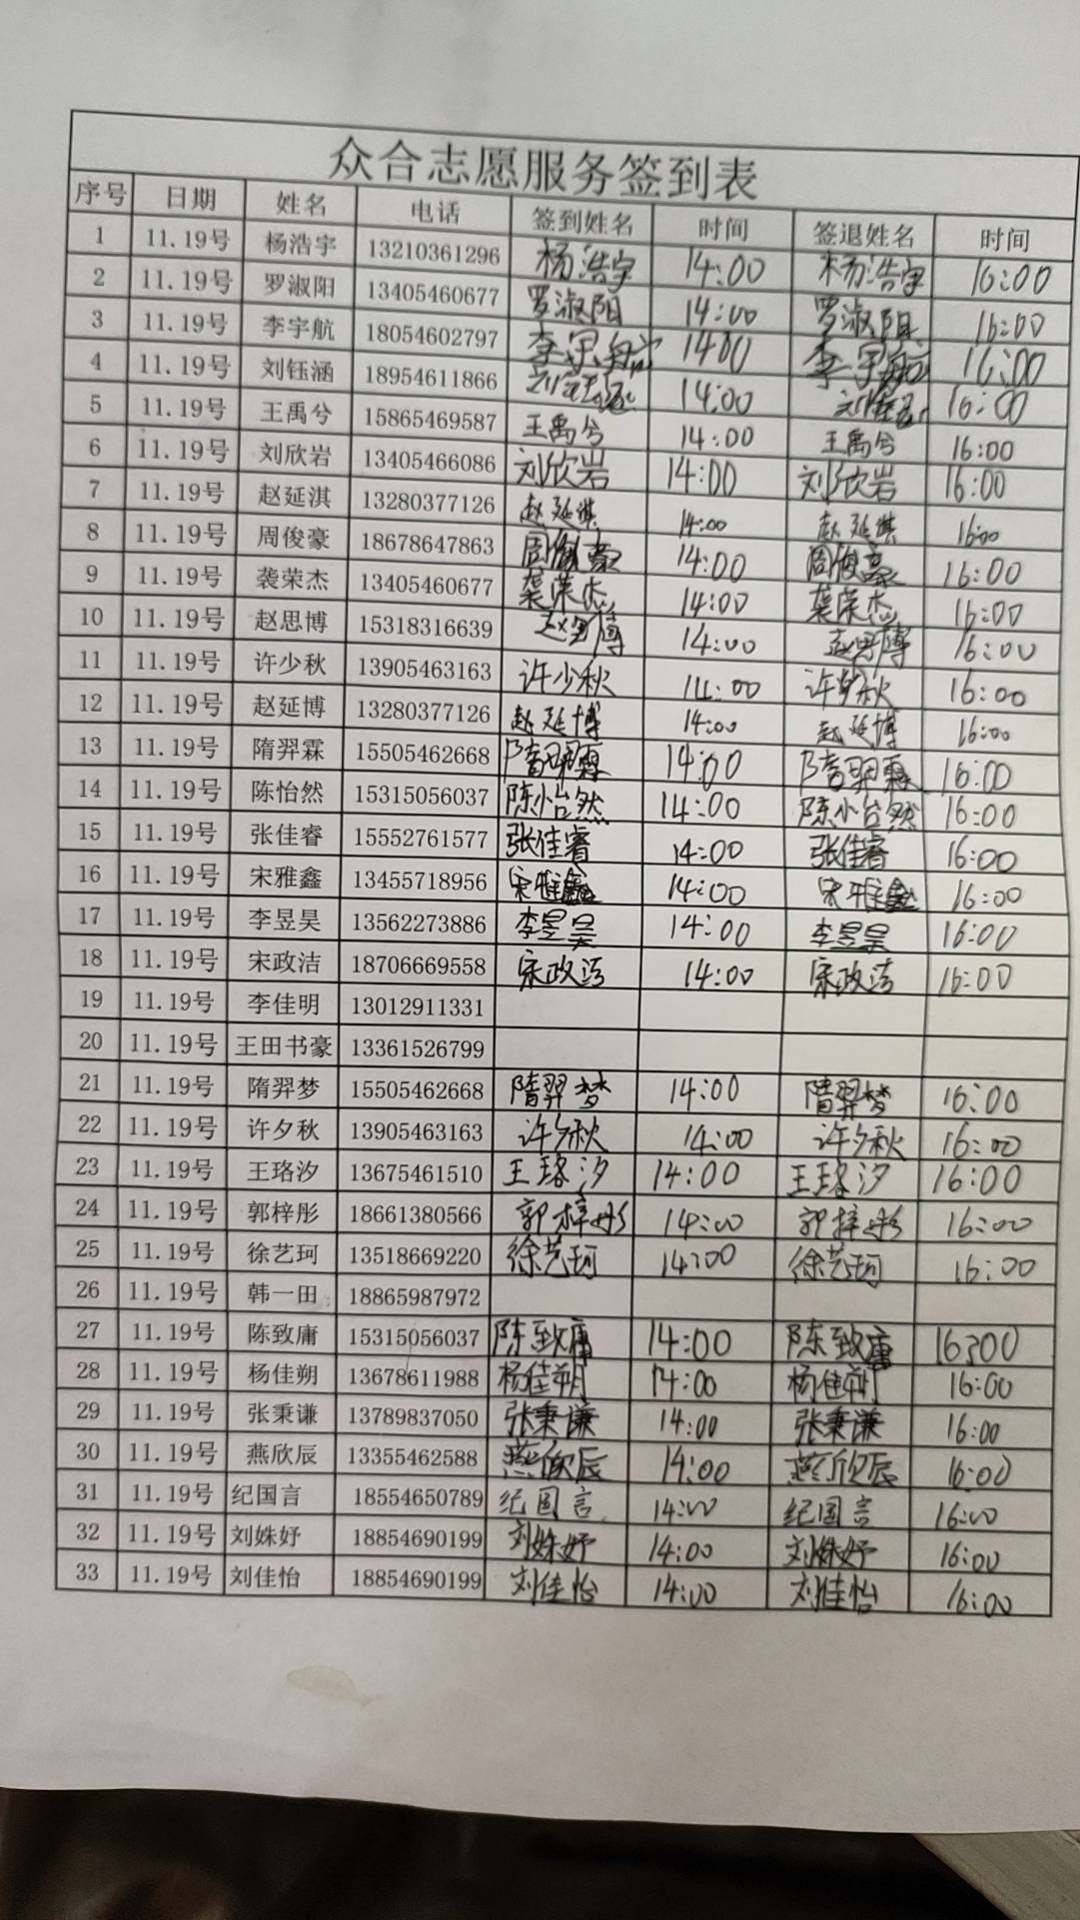 众合志愿服务签到表
序号 日期 姓名 电话 签到姓名 时间 签退姓名 时间
1 11.19号 杨浩宇 13210361296 杨浩宇 14:00 杨浩宇 16:00
2 11.19号 罗淑阳 13405460677 罗淑阳 14:00 罗淑阳 16:00
3 11.19号 李宇航 18054602797 李宇航 14:00 李宇航 16:00
4 11.19号 刘钰涵 18954611866 14:00 16:00
5 11.19号 王禹兮 15865469587 王禹兮 14:00 王禹兮 16:00
6 11.19号 刘欣岩 13405466086 刘欣岩 14:00 刘欣岩 16:00
7 11.19号 赵延淇 13280377126 赵延淇 14:00 赵延淇 16:00
8 11.19号 周俊豪 18678647863 周俊豪 14:00 周俊豪 16:00
9 11.19号 袭荣杰 13405460677 袭荣杰 14:00 袭荣杰 16:00
10 11.19号 赵思博 15318316639 赵思博 14:00 赵思博 16:00
11 11.19号 许少秋 13905463163 许少秋 14:00 许少秋 16:00
12 11.19号 赵延博 13280377126 赵延博 14:00 赵延博 16:00
13 11.19号 隋羿霖 15505462668 隋羿霖 14:00 隋羿霖 16:00
14 11.19号 陈怡然 15315056037 陈怡然 14:00 陈怡然 16:00
15 11.19号 张佳睿 15552761577 张佳睿 14:00 张佳睿 16:00
16 11.19号 宋雅鑫 13455718956 宋雅鑫 14:00 宋雅鑫 16:00
17 11.19号 李昱昊 13562273886 李昱昊 14:00 李昱昊 16:00
18 11.19号 宋政洁 18706669558 宋政洁 14:00 宋政洁 16:00
19 11.19号 李佳明 13012911331
20 11.19号 王田书豪 13361526799
21 11.19号 隋羿梦 15505462668 隋羿梦 14:00 隋羿梦 16:00
22 11.19号 许夕秋 13905463163 许夕秋 14:00 许夕秋 16:00
23 11.19号 王珞汐 13675461510 王珞汐 14:00 王珞汐 16:00
24 11.19号 郭梓彤 18661380566 郭梓彤 14:00 郭梓彤 16:00
25 11.19号 徐艺珂 13518669220 徐艺珂 14:00 徐艺珂 16:00
26 11.19号 韩一田 18865987972
27 11.19号 陈致庸 15315056037 陈致庸 14:00 陈致庸 16:00
28 11.19号 杨佳朔 13678611988 杨佳朔 14:00 杨佳朔 16:00
29 11.19号 张秉谦 13789837050 张秉谦 14:00 张秉谦 16:00
30 11.19号 燕欣辰 13355462588 燕欣辰 14:00 燕欣辰 16:00
31 11.19号 纪国言 18554650789 纪国言 14:00 纪国言 16:00
32 11.19号 刘姝妤 18854690199 刘姝妤 14:00 刘姝妤 16:00
33 11.19号 刘佳怡 18854690199 刘佳怡 14:00 刘佳怡 16:00